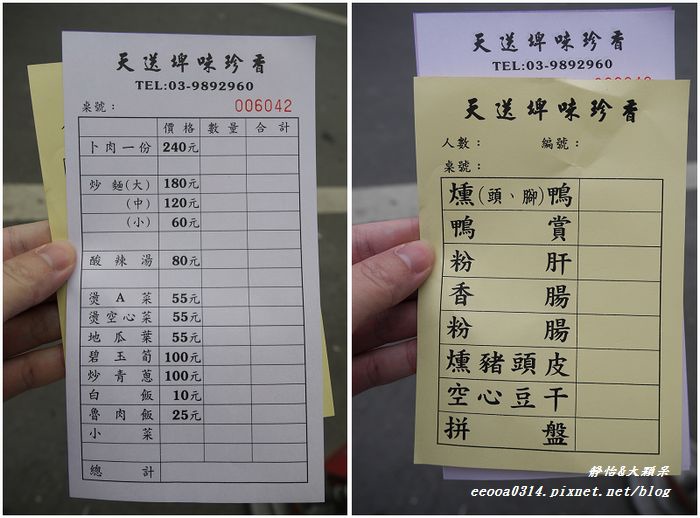 天送埤味珍香
TEL:03-9892960
桌號：
006042
價格 數量 合計
卜肉一份 240元
炒麵(大) 180元
(中) 120元
(小) 60元
酸辣湯 80元
燙A菜 55元
燙空心菜 55元
地瓜葉 55元
碧玉筍 100元
炒青蔥 100元
白飯 10元
魯肉飯 25元
小菜
總計
天送埤味珍香
TEL:03-9892960
天送埤味珍香
人數： 編號：
桌號：
燻(頭、腳)鴨
鴨賞
粉肝
香腸
粉腸
燻豬頭皮
空心豆干
拼盤
靜怡&大顆呆
eeooa0314.pixnet.net/blog